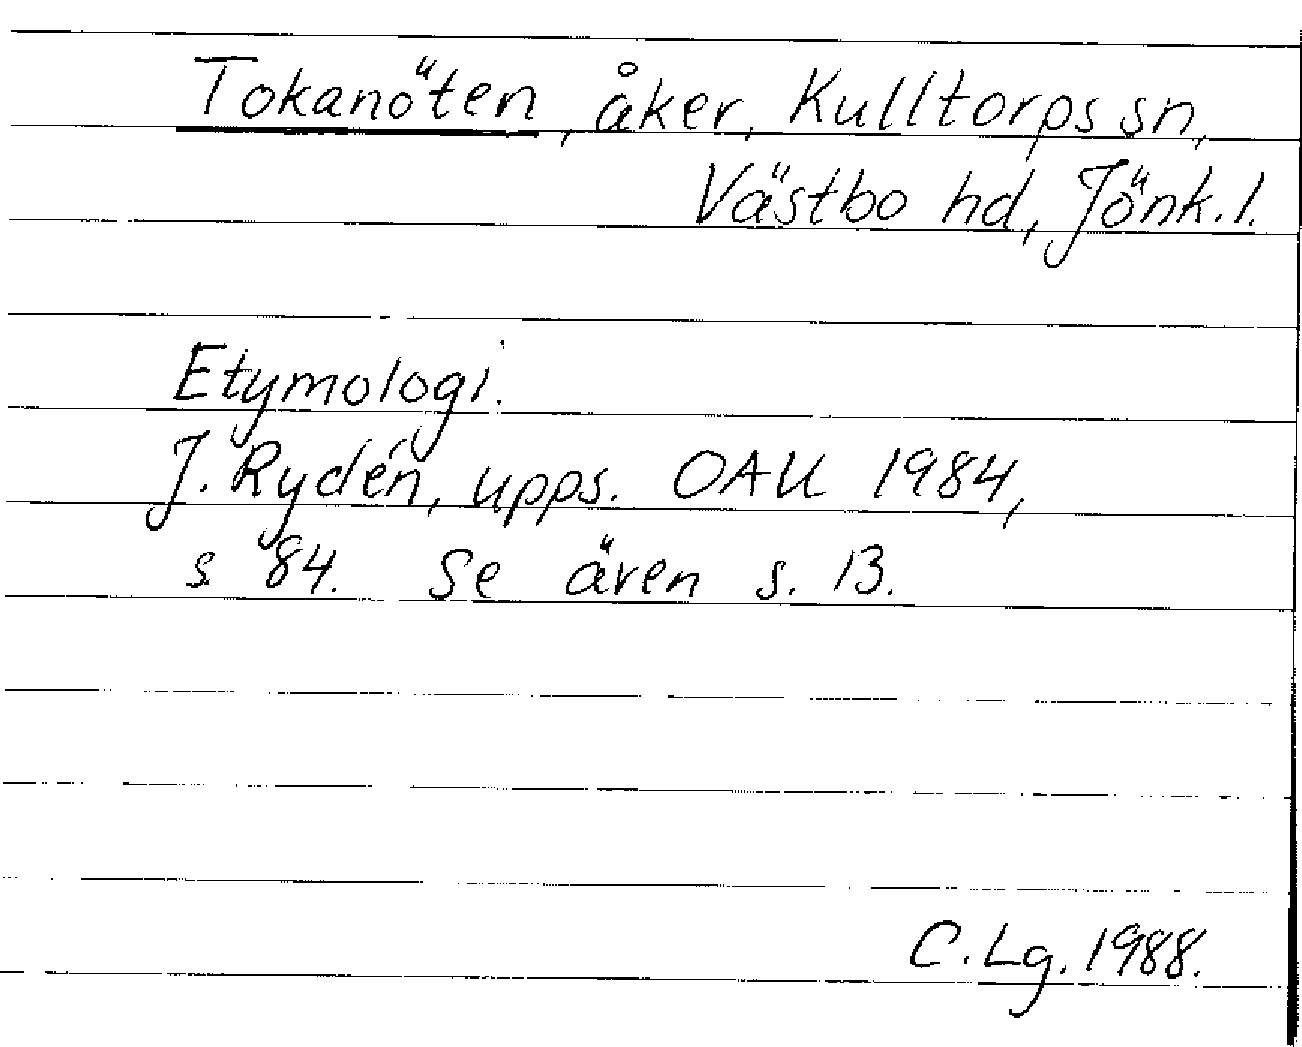 Tokanöten, åker, Kulltorps sn,
Västbo hd, Jönk. l.
Etymologi.
J. Rydén, upps. OAU 1984,
s 84. Se även s. 13.
C. Lg. 1988.